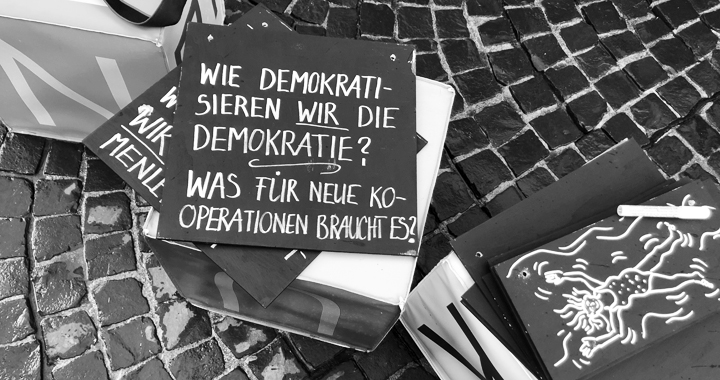 WIE DEMOKRATI-
SIEREN WIR DIE
DEMOKRATIE?
WAS FÜR NEUE KO-
OPERATIONEN BRAUCHT ES?